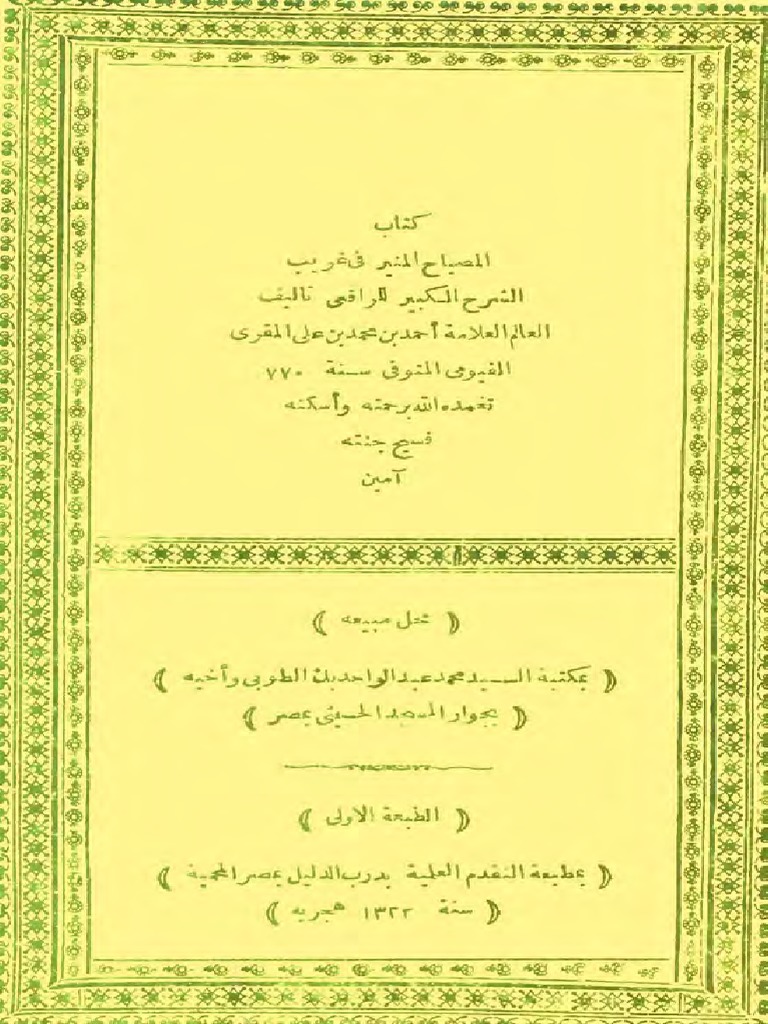 كتاب
المصباح المنير فى غريب
الشرح الكبير للرافعى تأليف
العالم العلامة أحمد بن محمد بن على المقرى
الفيومى المتوفى سنة ٧٧٠
تغمده الله برحمته وأسكنه
فسيح جنته
آمين
﴿ محل مبيعه ﴾
﴿ بمكتبة السيد محمد عبد الواحد بك الطوبى وأخيه ﴾
﴿ بجوار المسجد الحسينى بمصر ﴾
﴿ الطبعة الاولى ﴾
﴿ بمطبعة التقدم العلمية بدرب الدليل بمصر المحمية ﴾
﴿ سنة ١٣٢٢ هجريه ﴾